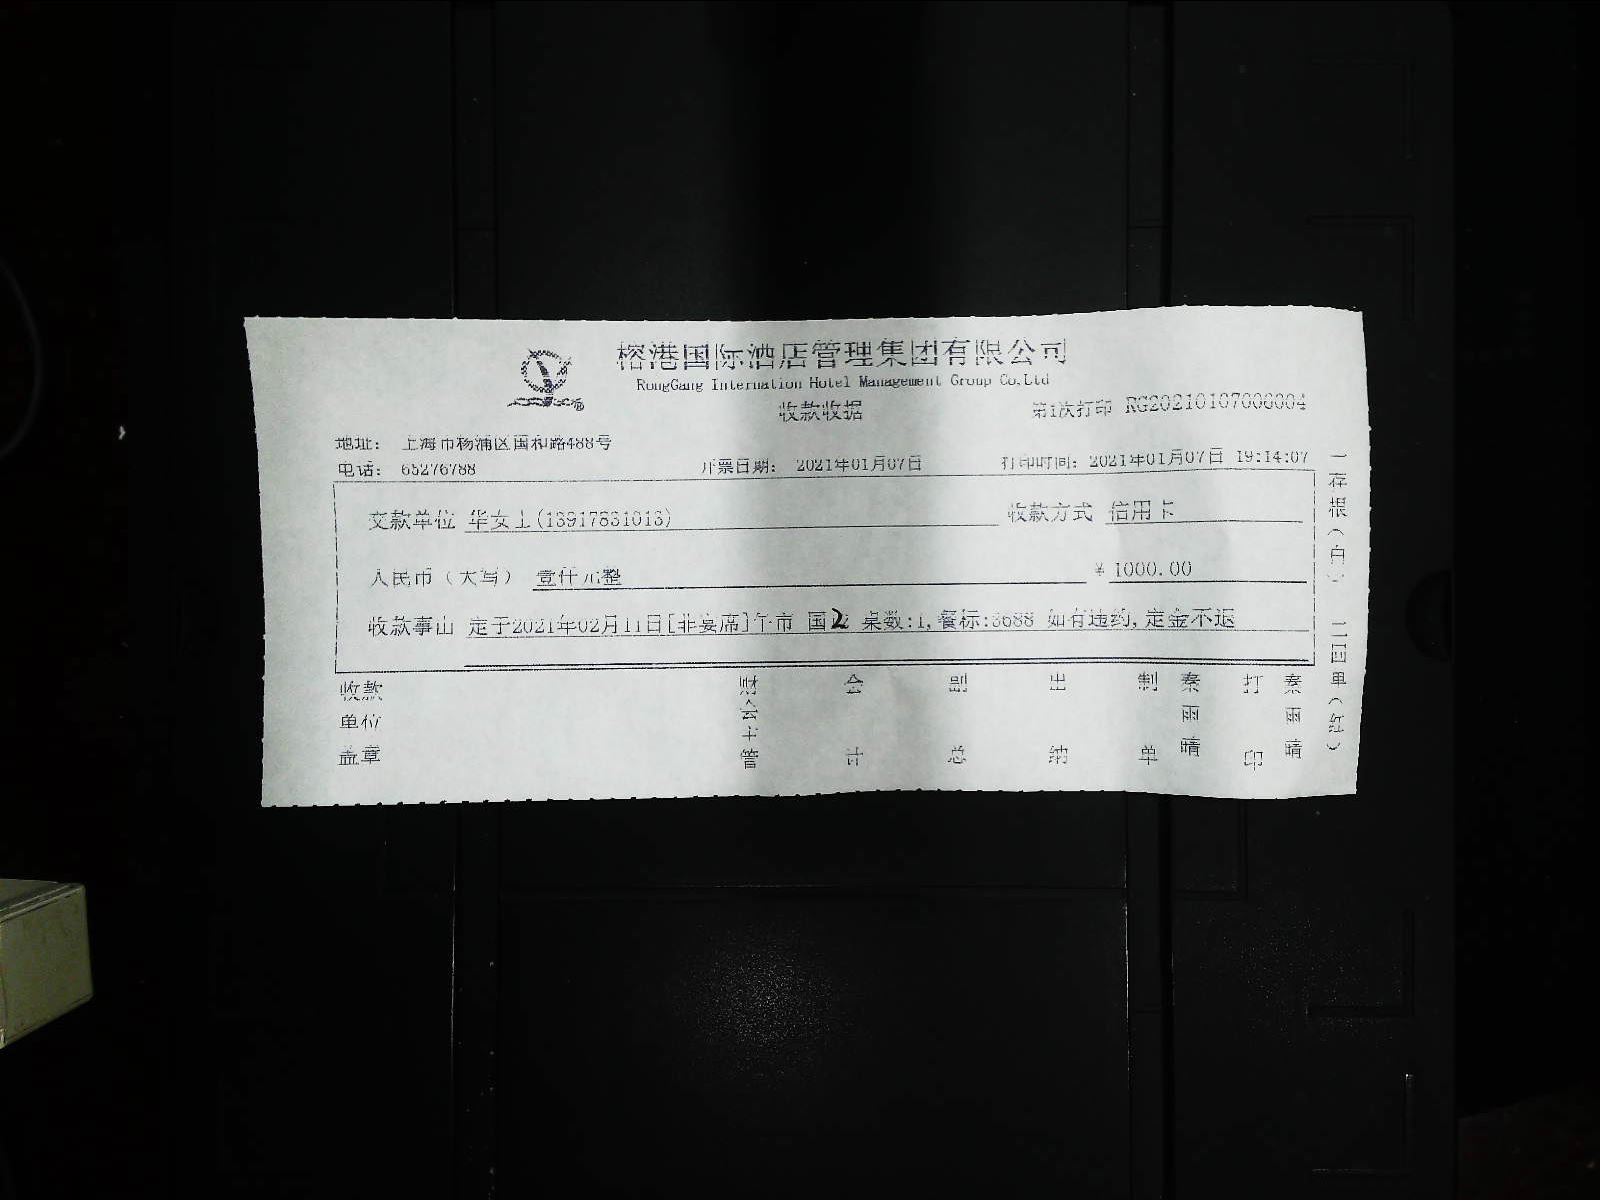 榕港国际酒店管理集团有限公司
RongGang Internation Hotel Management Group Co,Ltd
收款收据
第1次打印 RG20210107006004
地址： 上海市杨浦区国和路488号
电话： 65276788 开票日期： 2021年01月07日 打印时间： 2021年01月07日 19:14:07
交款单位 华女士(13917831013) 收款方式 信用卡
人民币（大写） 壹仟元整 ¥ 1000.00
收款事由 定于2021年02月11日[非宴席]午市 国2 桌数:1,餐标:3688 如有违约,定金不退
收款单位盖章
财会主管
会计
副总
出纳
制单 秦雨晴
打印 秦雨晴
一存根（白） 二回单（红）